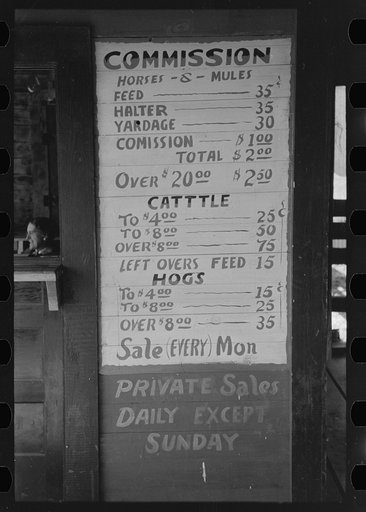 COMMISSION
HORSES -&- MULES
FEED 35¢
HALTER 35
YARDAGE 30
COMISSION $1.00
TOTAL $2.00
OVER $20.00 $2.50
CATTTLE
TO $4.00 25¢
TO $8.00 50
OVER $8.00 75
LEFT OVERS FEED 15
HOGS
TO $4.00 15¢
TO $8.00 25
OVER $8.00 35
Sale (EVERY) Mon
PRIVATE Sales
DAILY EXCEPT
SUNDAY